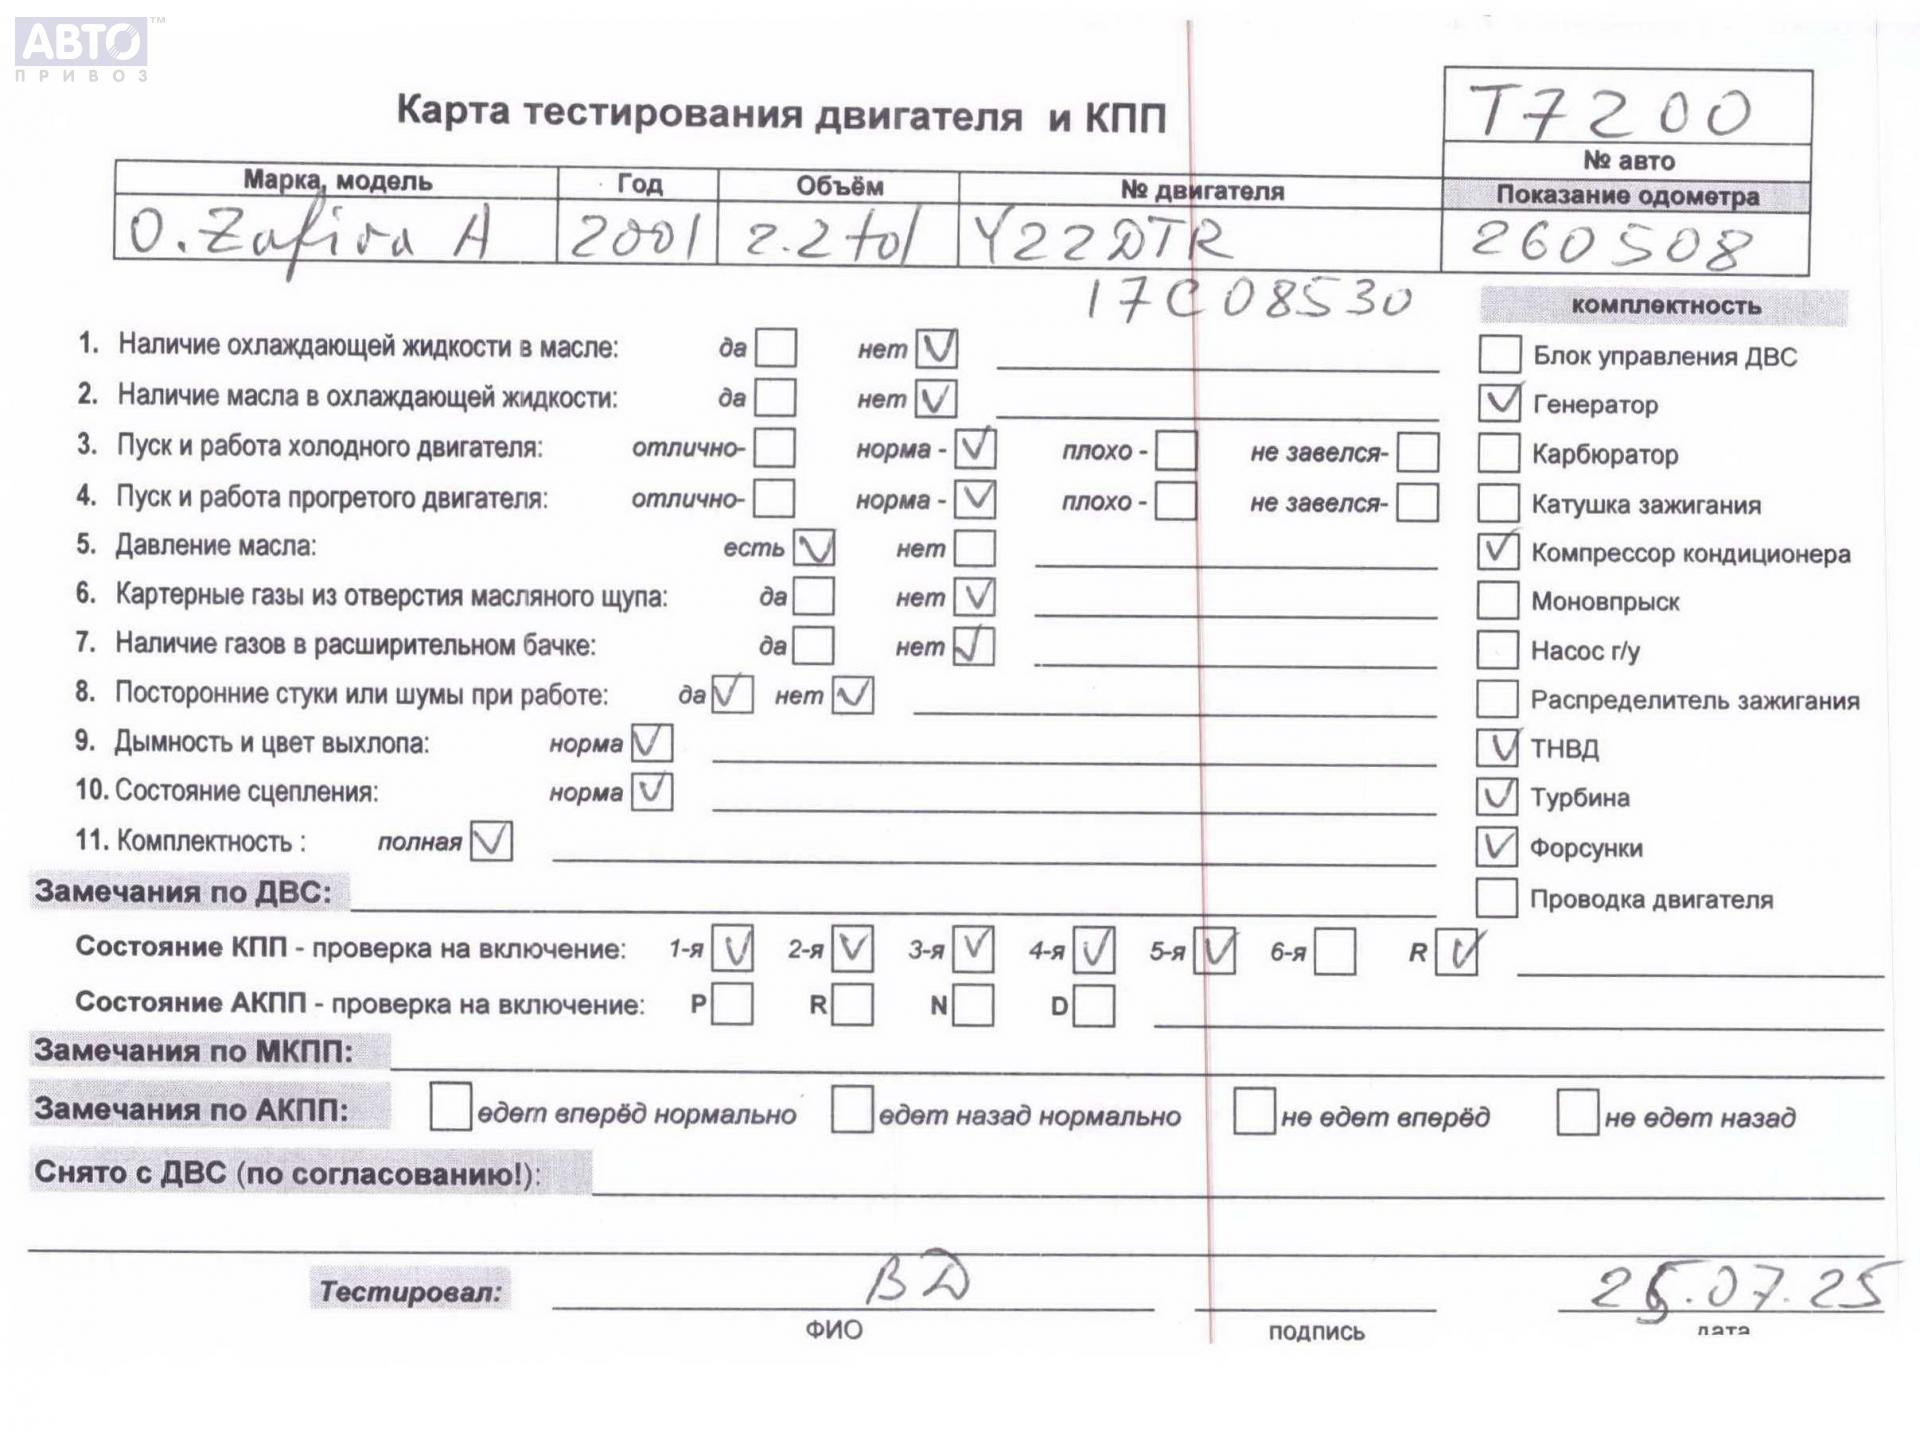 АВТО™
ПРИВОЗ
Карта тестирования двигателя и КПП
T7200
№ авто
Марка, модель Год Объём № двигателя Показание одометра
O.Zafira A 2001 2.2 tdi Y22DTR 260508
17C08530
комплектность
1. Наличие охлаждающей жидкости в масле: да нет
Блок управления ДВС
2. Наличие масла в охлаждающей жидкости: да нет
Генератор
3. Пуск и работа холодного двигателя: отлично- норма - плохо - не завелся-
Карбюратор
4. Пуск и работа прогретого двигателя: отлично- норма - плохо - не завелся-
Катушка зажигания
5. Давление масла: есть нет
Компрессор кондиционера
6. Картерные газы из отверстия масляного щупа: да нет
Моновпрыск
7. Наличие газов в расширительном бачке: да нет
Насос г/у
8. Посторонние стуки или шумы при работе: да нет
Распределитель зажигания
9. Дымность и цвет выхлопа: норма
ТНВД
10. Состояние сцепления: норма
Турбина
11. Комплектность : полная
Форсунки
Замечания по ДВС:
Проводка двигателя
Состояние КПП - проверка на включение: 1-я 2-я 3-я 4-я 5-я 6-я R
Состояние АКПП - проверка на включение: P R N D
Замечания по МКПП:
Замечания по АКПП: едет вперёд нормально едет назад нормально не едет вперёд не едет назад
Снято с ДВС (по согласованию!):
Тестировал: ВД
ФИО подпись дата